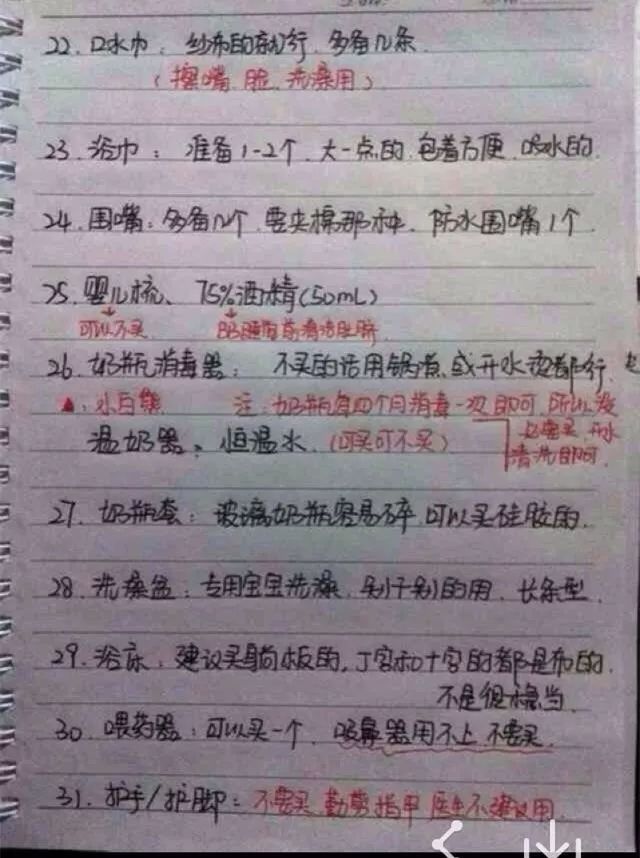 22. 口水巾: 纱布的就行. 多备几条
(擦嘴. 脸. 洗澡用)
23. 浴巾: 准备1-2个. 大一点的. 包着方便. 吸水的.
24. 围嘴: 多备几个. 要夹棉那种. 防水围嘴1个
25. 婴儿梳、75%酒精(50mL)
可以不买 BB睡前清洁肚脐
26. 奶瓶消毒器: 不买的话用锅煮. 或开水烫都行.
小白熊 注: 奶瓶每四个月消毒一次即可. 所以没
必要买. 开水
温奶器、恒温水. (可买可不买)
清洗即可.
27. 奶瓶套: 玻璃奶瓶容易碎. 可以买硅胶的.
28. 洗澡盆: 专用宝宝洗澡. 别干别的用. 长条型.
29. 浴床: 建议买躺板的. 丁字和十字的都是布的.
不是很稳当.
30. 喂药器: 可以买一个. 吸鼻器用不上 不要买.
31. 护手/护脚: 不要买 勤剪指甲 医生不建议用.